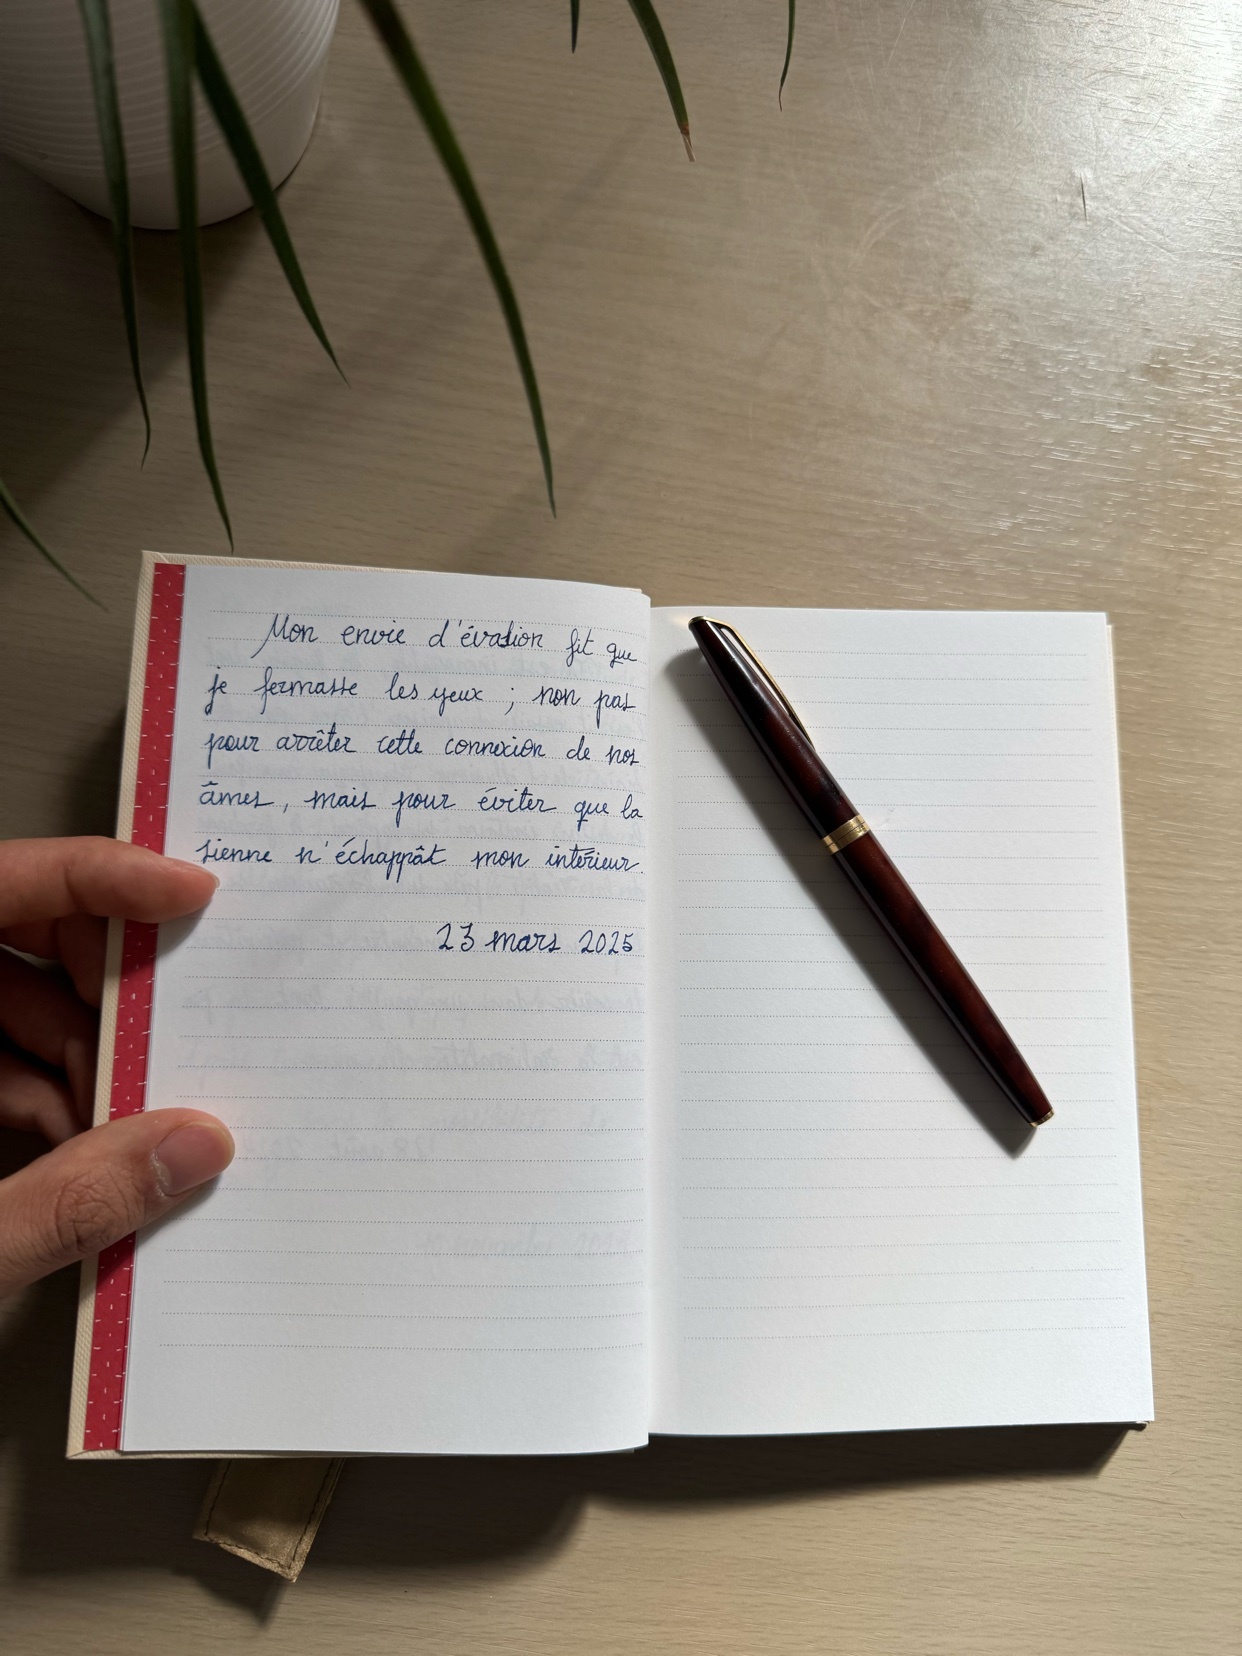 Mon envie d'évasion fit que
je fermasse les yeux ; non pas
pour arrêter cette connexion de nos
âmes, mais pour éviter que la
sienne n'échappât mon intérieur.
23 mars 2025